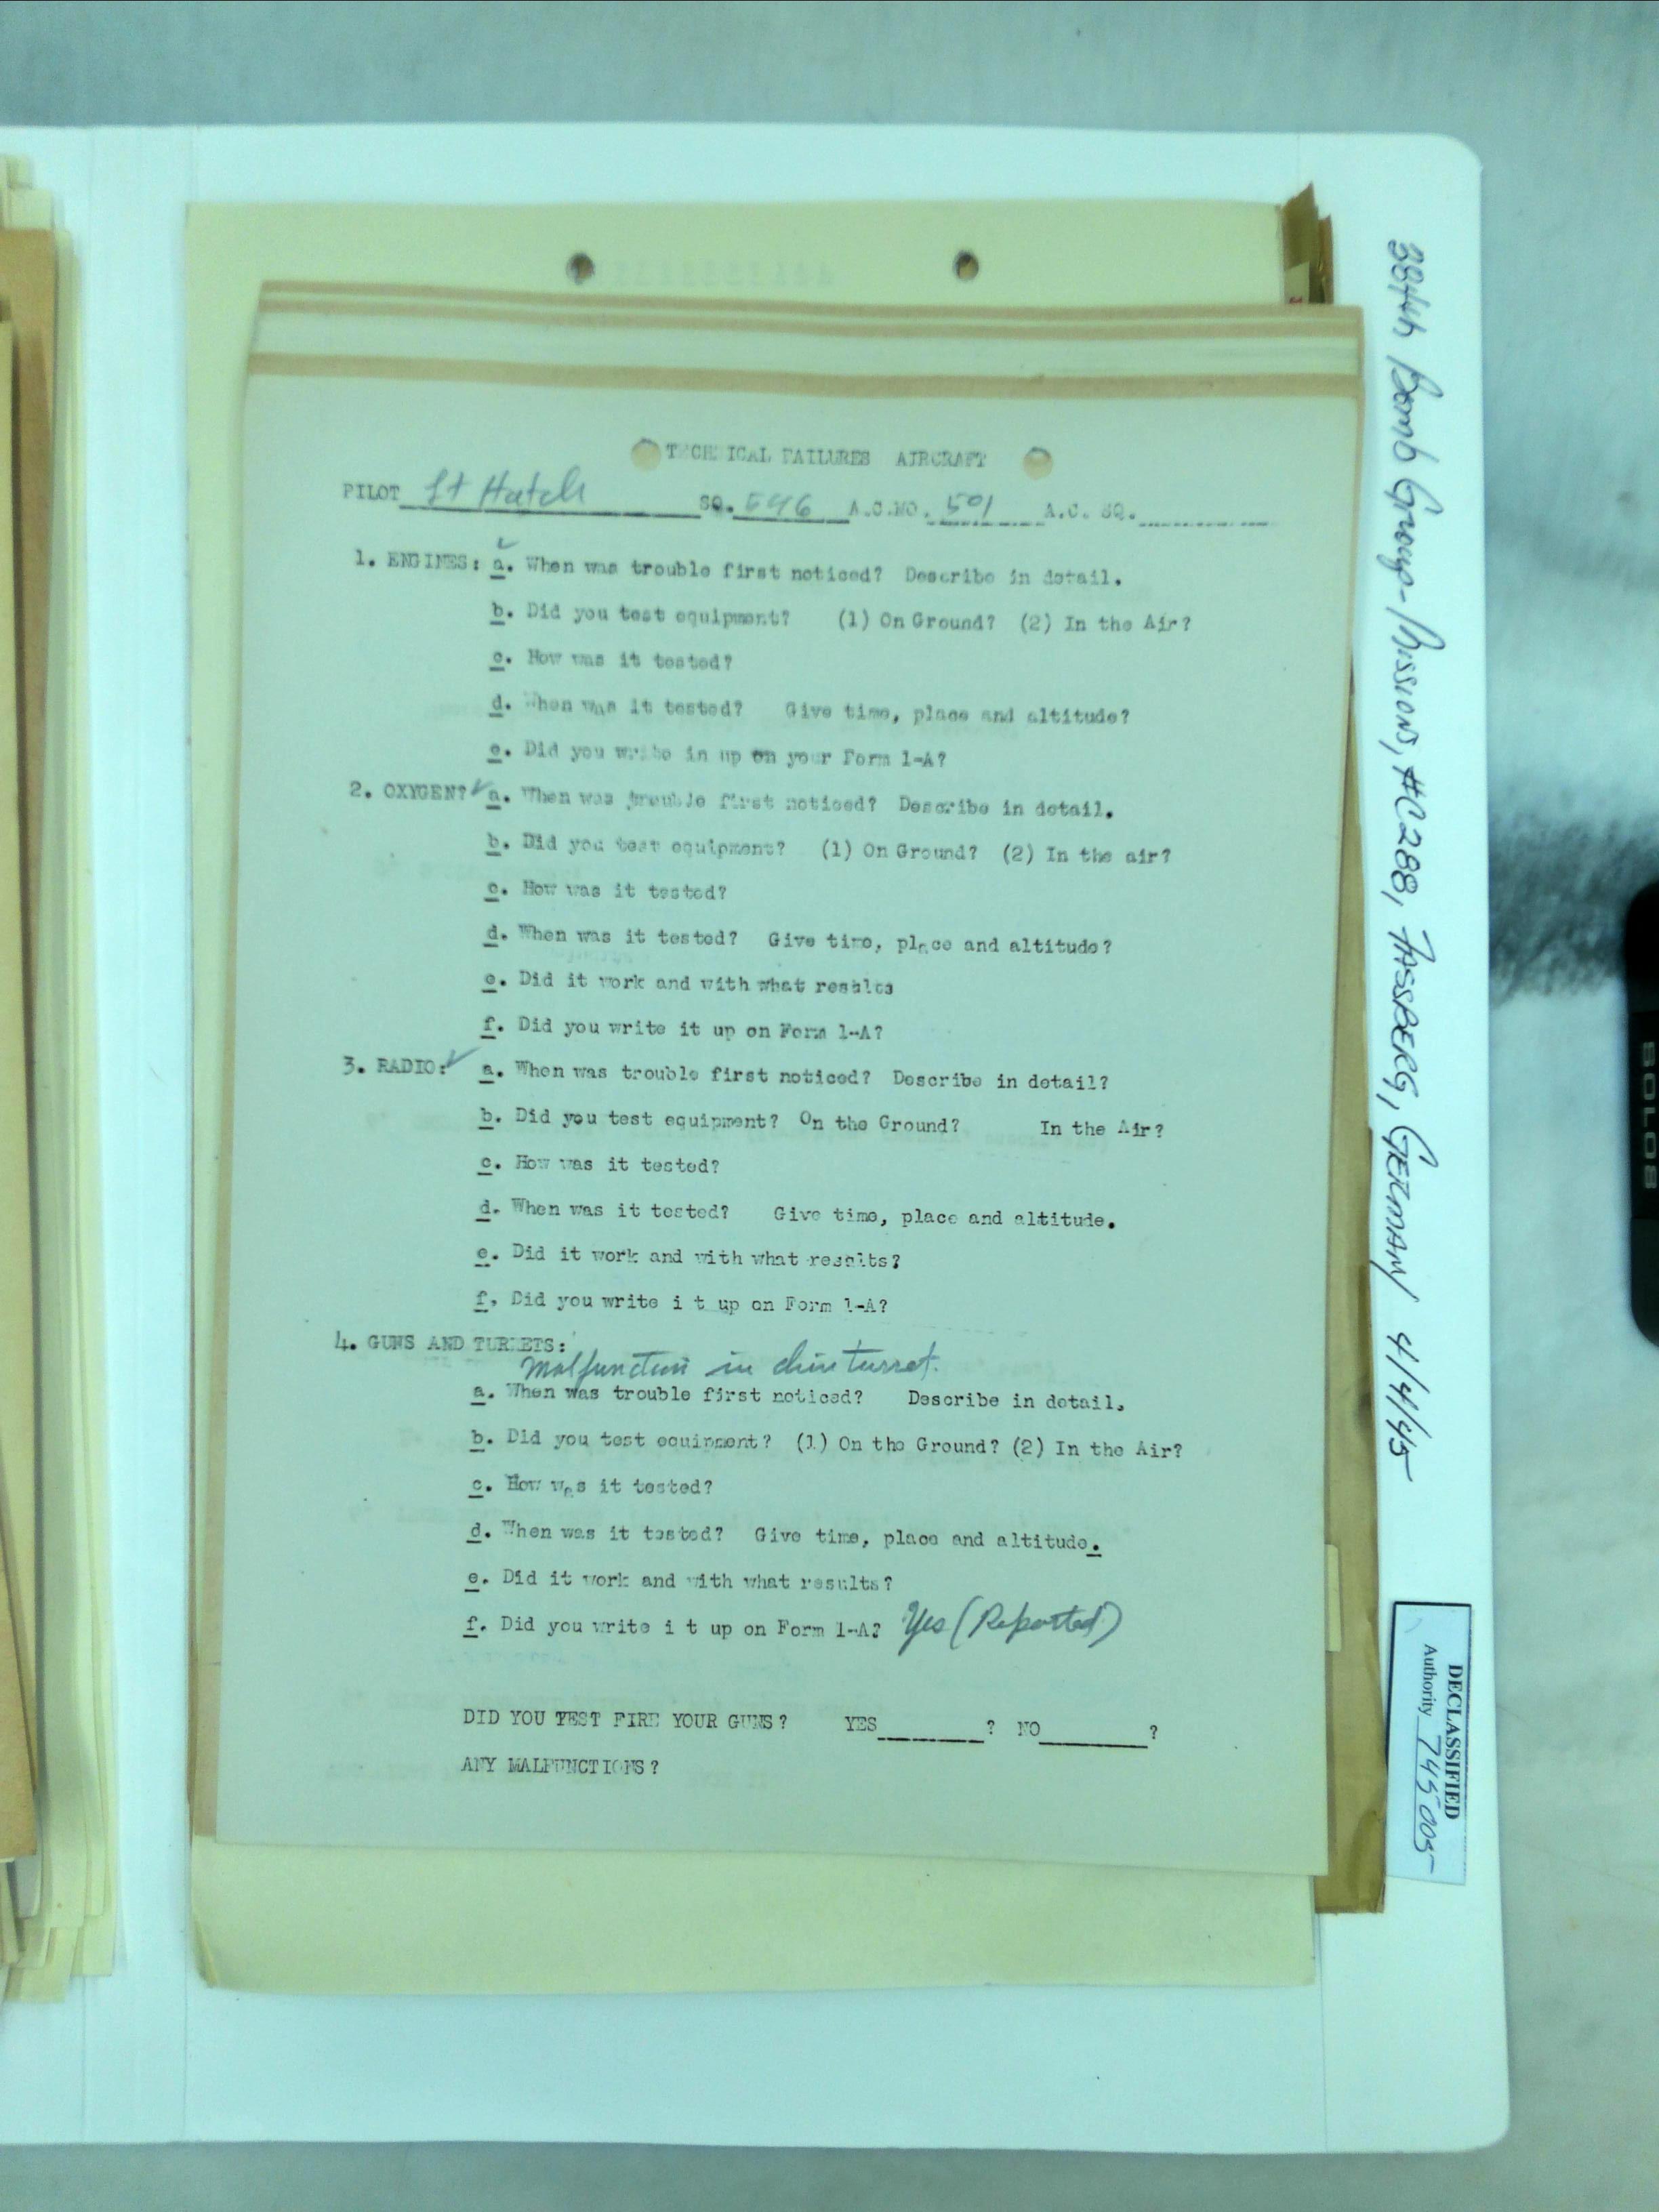 TECHNICAL FAILURES AIRCRAFT
PILOT Lt Hatch SQ. 546 A.C.NO. 501 A.C. SQ.
1. ENGINES: a. When was trouble first noticed? Describe in detail.
b. Did you test equipment? (1) On Ground? (2) In the Air?
c. How was it tested?
d. When was it tested? Give time, place and altitude?
e. Did you write in up on your Form 1-A?
2. OXYGEN? a. When was trouble first noticed? Describe in detail.
b. Did you test equipment? (1) On Ground? (2) In the air?
c. How was it tested?
d. When was it tested? Give time, place and altitude?
e. Did it work and with what results
f. Did you write it up on Form 1-A?
3. RADIO: a. When was trouble first noticed? Describe in detail?
b. Did you test equipment? On the Ground? In the Air?
c. How was it tested?
d. When was it tested? Give time, place and altitude.
e. Did it work and with what results?
f. Did you write i t up on Form 1-A?
4. GUNS AND TURRETS:
Malfunction in chin turret.
a. When was trouble first noticed? Describe in detail.
b. Did you test equipment? (1) On the Ground? (2) In the Air?
c. How was it tested?
d. When was it tested? Give time, place and altitude.
e. Did it work and with what results?
f. Did you write i t up on Form 1-A? Yes (Reported)
DID YOU TEST FIRE YOUR GUNS? YES ? NO ?
ANY MALFUNCTIONS?
384th Bomb Group-Missions, #C288, FASSBERG, GERMANY 4/4/45
DECLASSIFIED
Authority 745005
SOLOS